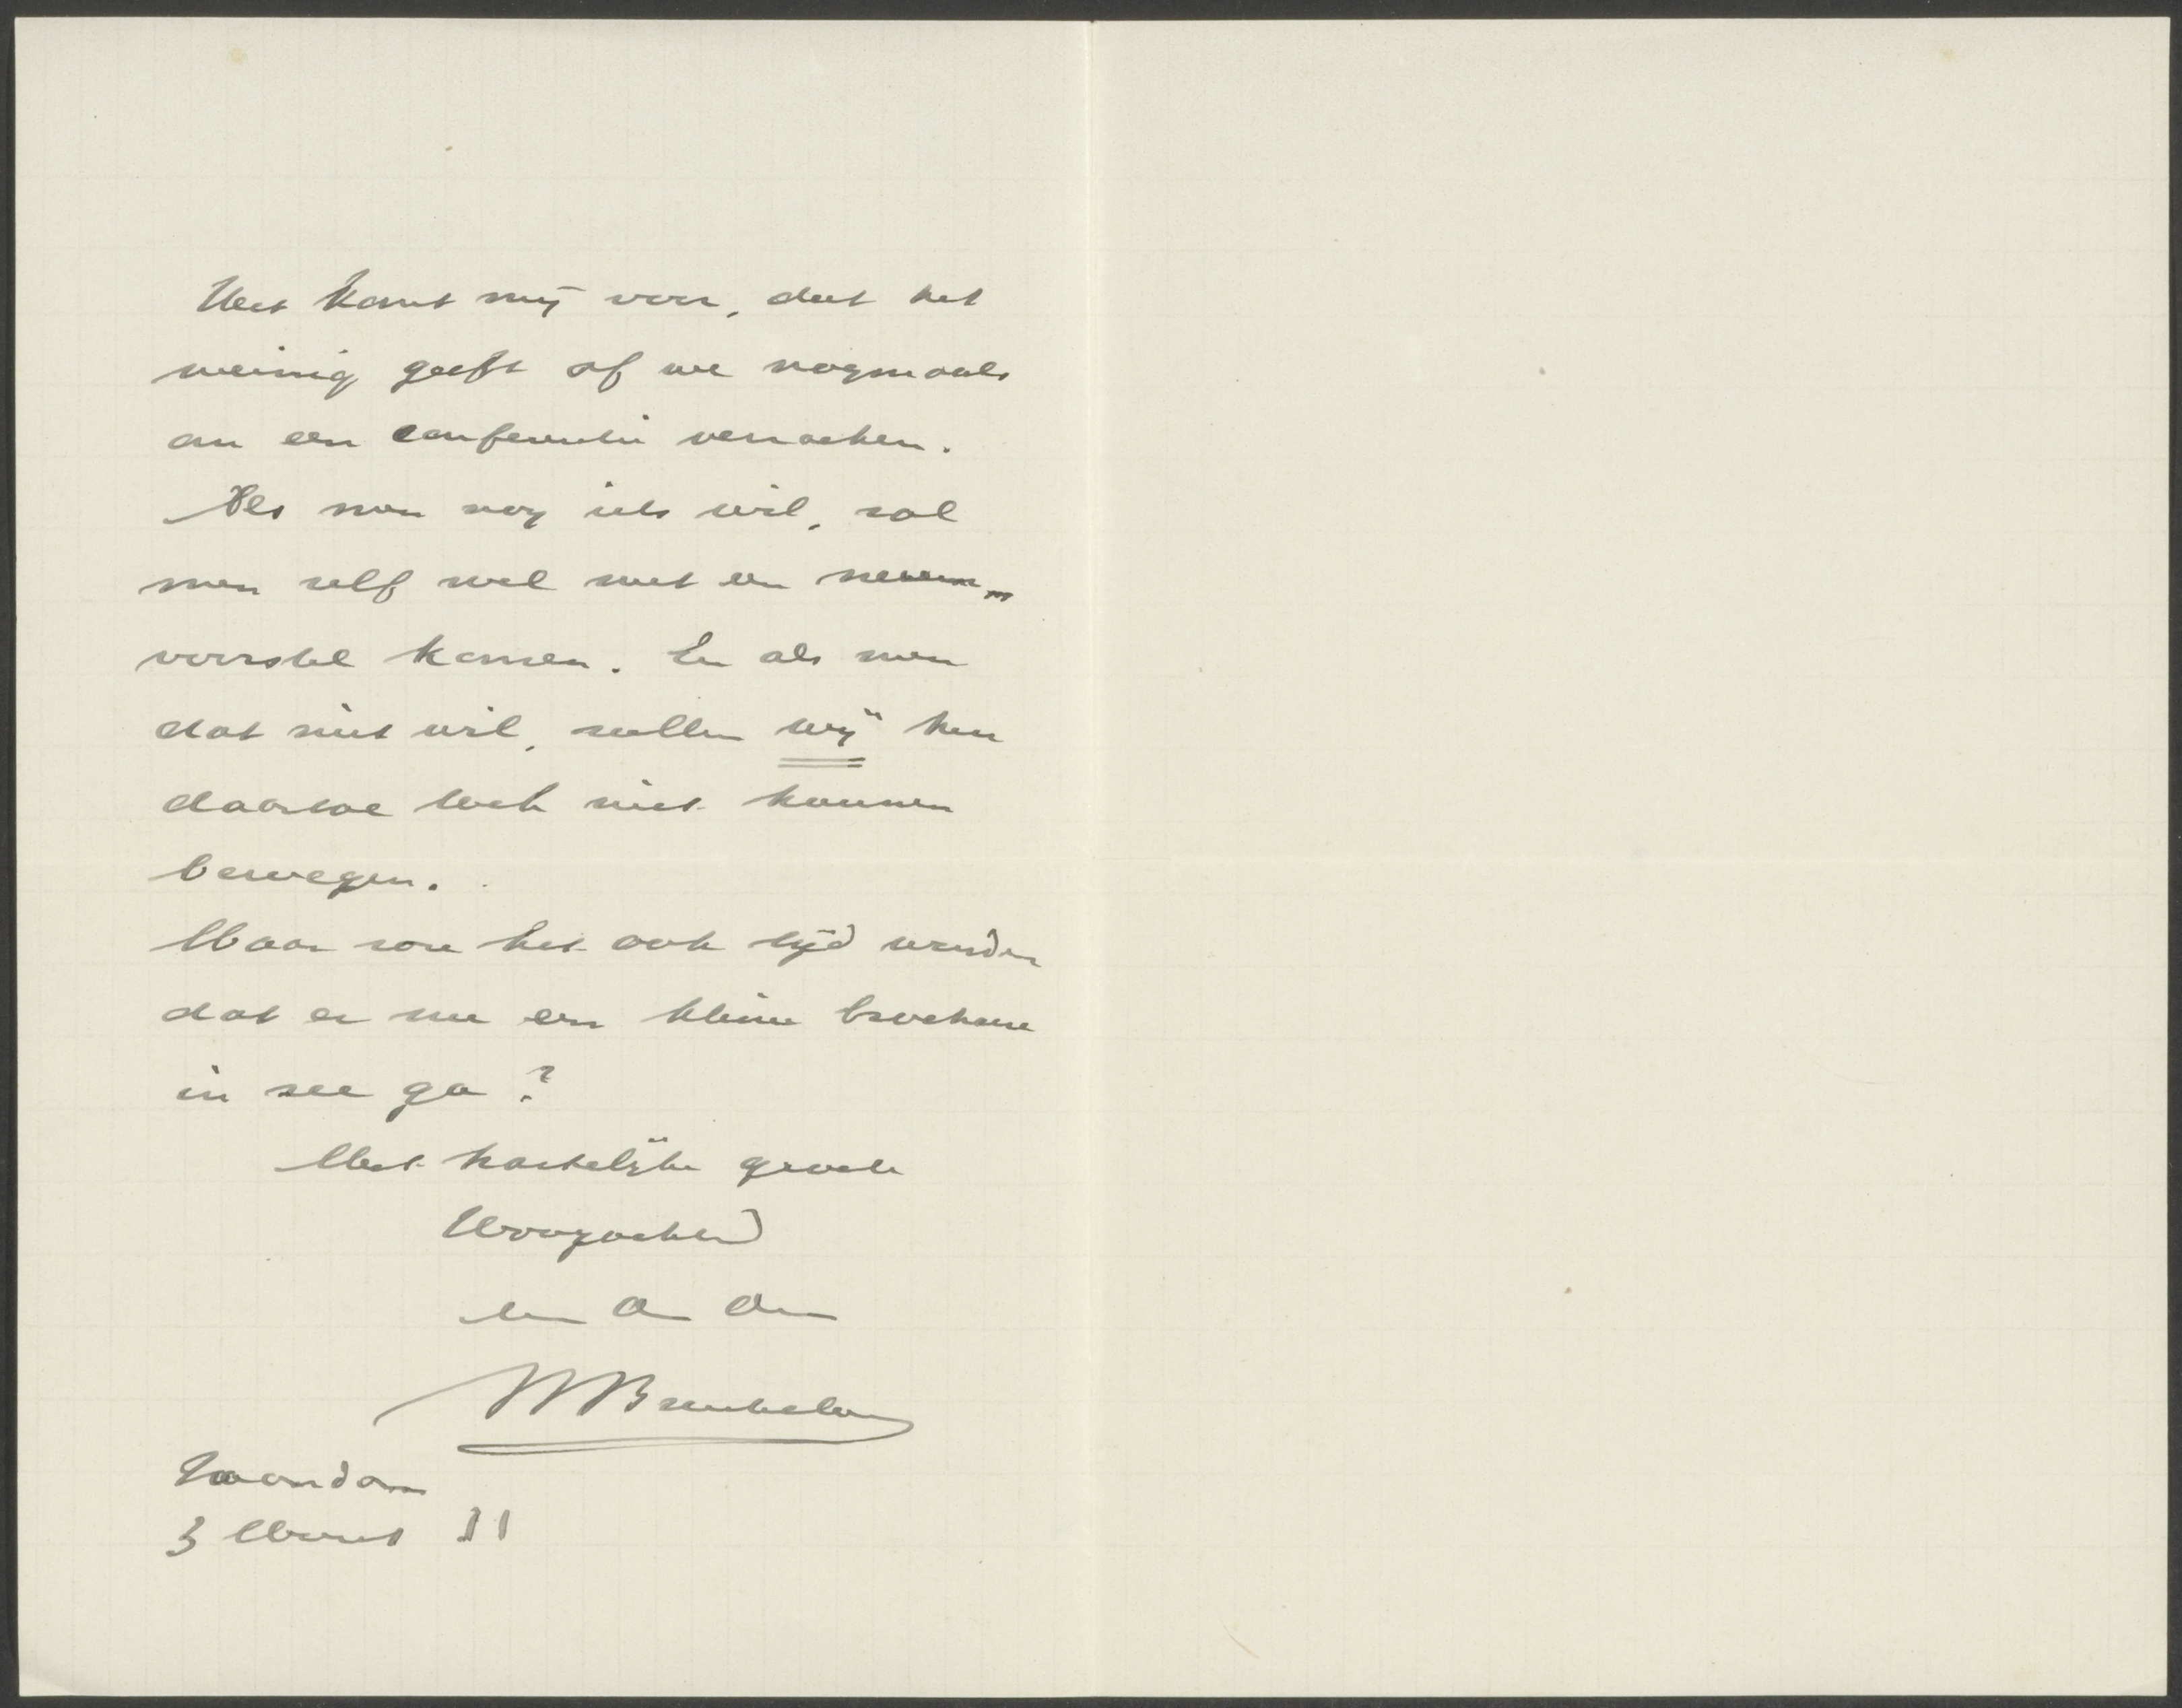 Het komt mij voor, dat het
weinig geeft of we nogmaals
om een conferentie verzoeken.
Als men nog iets wil, zal
men zelf wel met een nieuw
voorstel komen. En als men
dat niet wil, zullen wij hen
daartoe toch niet kunnen
bewegen.
Maar zou het ook tijd worden
dat er nu een kleine brochure
in zee ga?
Met hartelijke groete
Hoogachtend
Zaandam
3 Maart 11